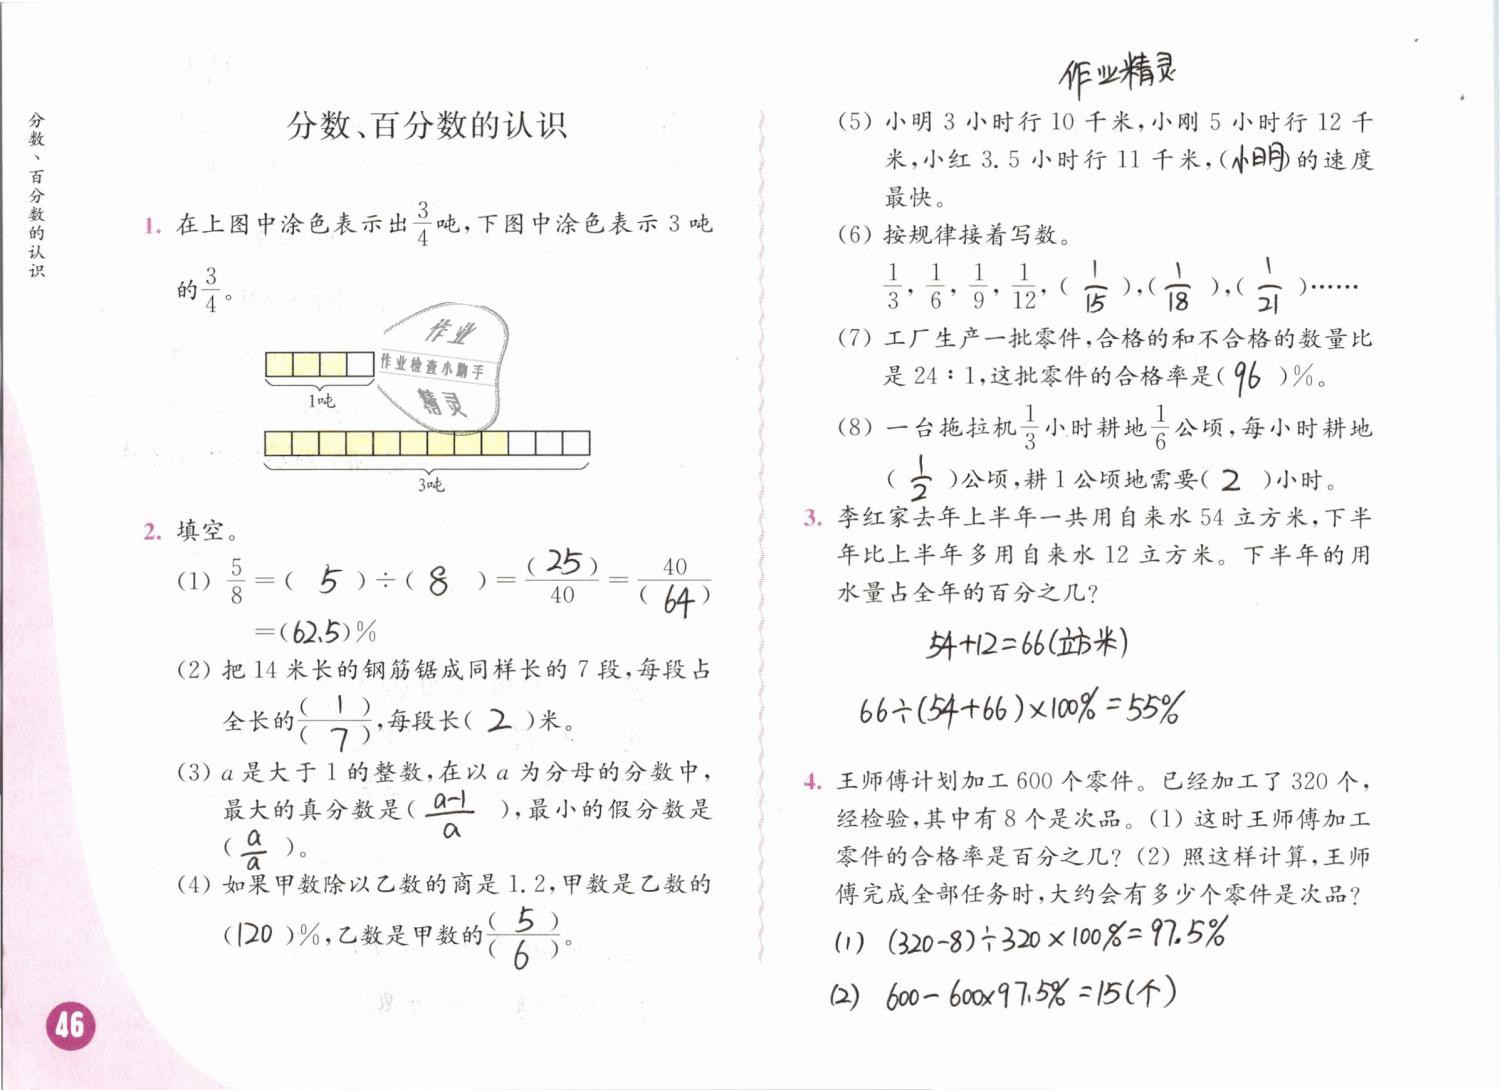 分数、百分数的认识
分数、百分数的认识
1. 在上图中涂色表示出3/4吨,下图中涂色表示 3 吨
的3/4。
作业
作业检查小助手
精灵
1吨
3吨
2. 填空。
(1) 5/8=( 5 )÷( 8 )=(25)/40=40/(64)
=(62.5)%
(2) 把 14 米长的钢筋锯成同样长的 7 段,每段占
全长的(1)/(7),每段长( 2 )米。
(3) a 是大于 1 的整数,在以 a 为分母的分数中,
最大的真分数是( a-1/a ),最小的假分数是
( a/a )。
(4) 如果甲数除以乙数的商是 1.2,甲数是乙数的
(120)%,乙数是甲数的(5)/(6)。
46
作业精灵
(5) 小明 3 小时行 10 千米,小刚 5 小时行 12 千
米,小红 3.5 小时行 11 千米,(小明)的速度
最快。
(6) 按规律接着写数。
1/3, 1/6, 1/9, 1/12, ( 1/15 ),( 1/18 ),( 1/21 )……
(7) 工厂生产一批零件,合格的和不合格的数量比
是 24∶1,这批零件的合格率是( 96 )%。
(8) 一台拖拉机1/3小时耕地1/6公顷,每小时耕地
( 1/2 )公顷,耕 1 公顷地需要( 2 )小时。
3. 李红家去年上半年一共用自来水 54 立方米,下半
年比上半年多用自来水 12 立方米。下半年的用
水量占全年的百分之几?
54+12=66(立方米)
66÷(54+66)×100%=55%
4. 王师傅计划加工 600 个零件。已经加工了 320 个,
经检验,其中有 8 个是次品。(1) 这时王师傅加工
零件的合格率是百分之几? (2) 照这样计算,王师
傅完成全部任务时,大约会有多少个零件是次品?
(1) (320-8)÷320×100%=97.5%
(2) 600-600×97.5%=15(个)